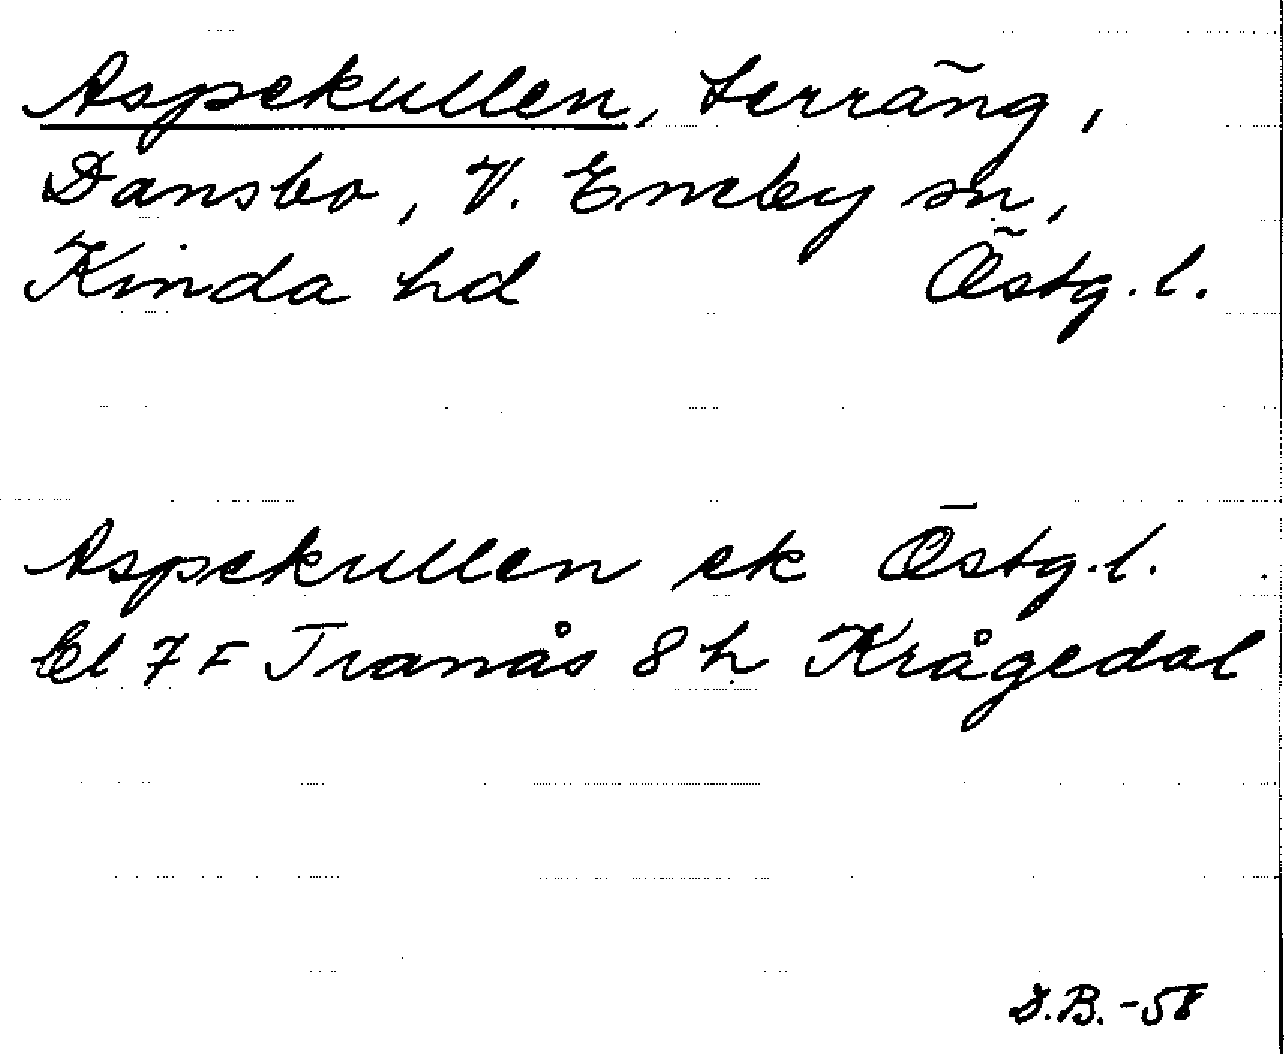 Aspekullen, terräng,
Dansbo, V. Eneby sn,
Kinda hd Östg. l.
Aspekullen ek Östg. l.
El 7 F Tranås 8 h Krågedal
D.B. -58